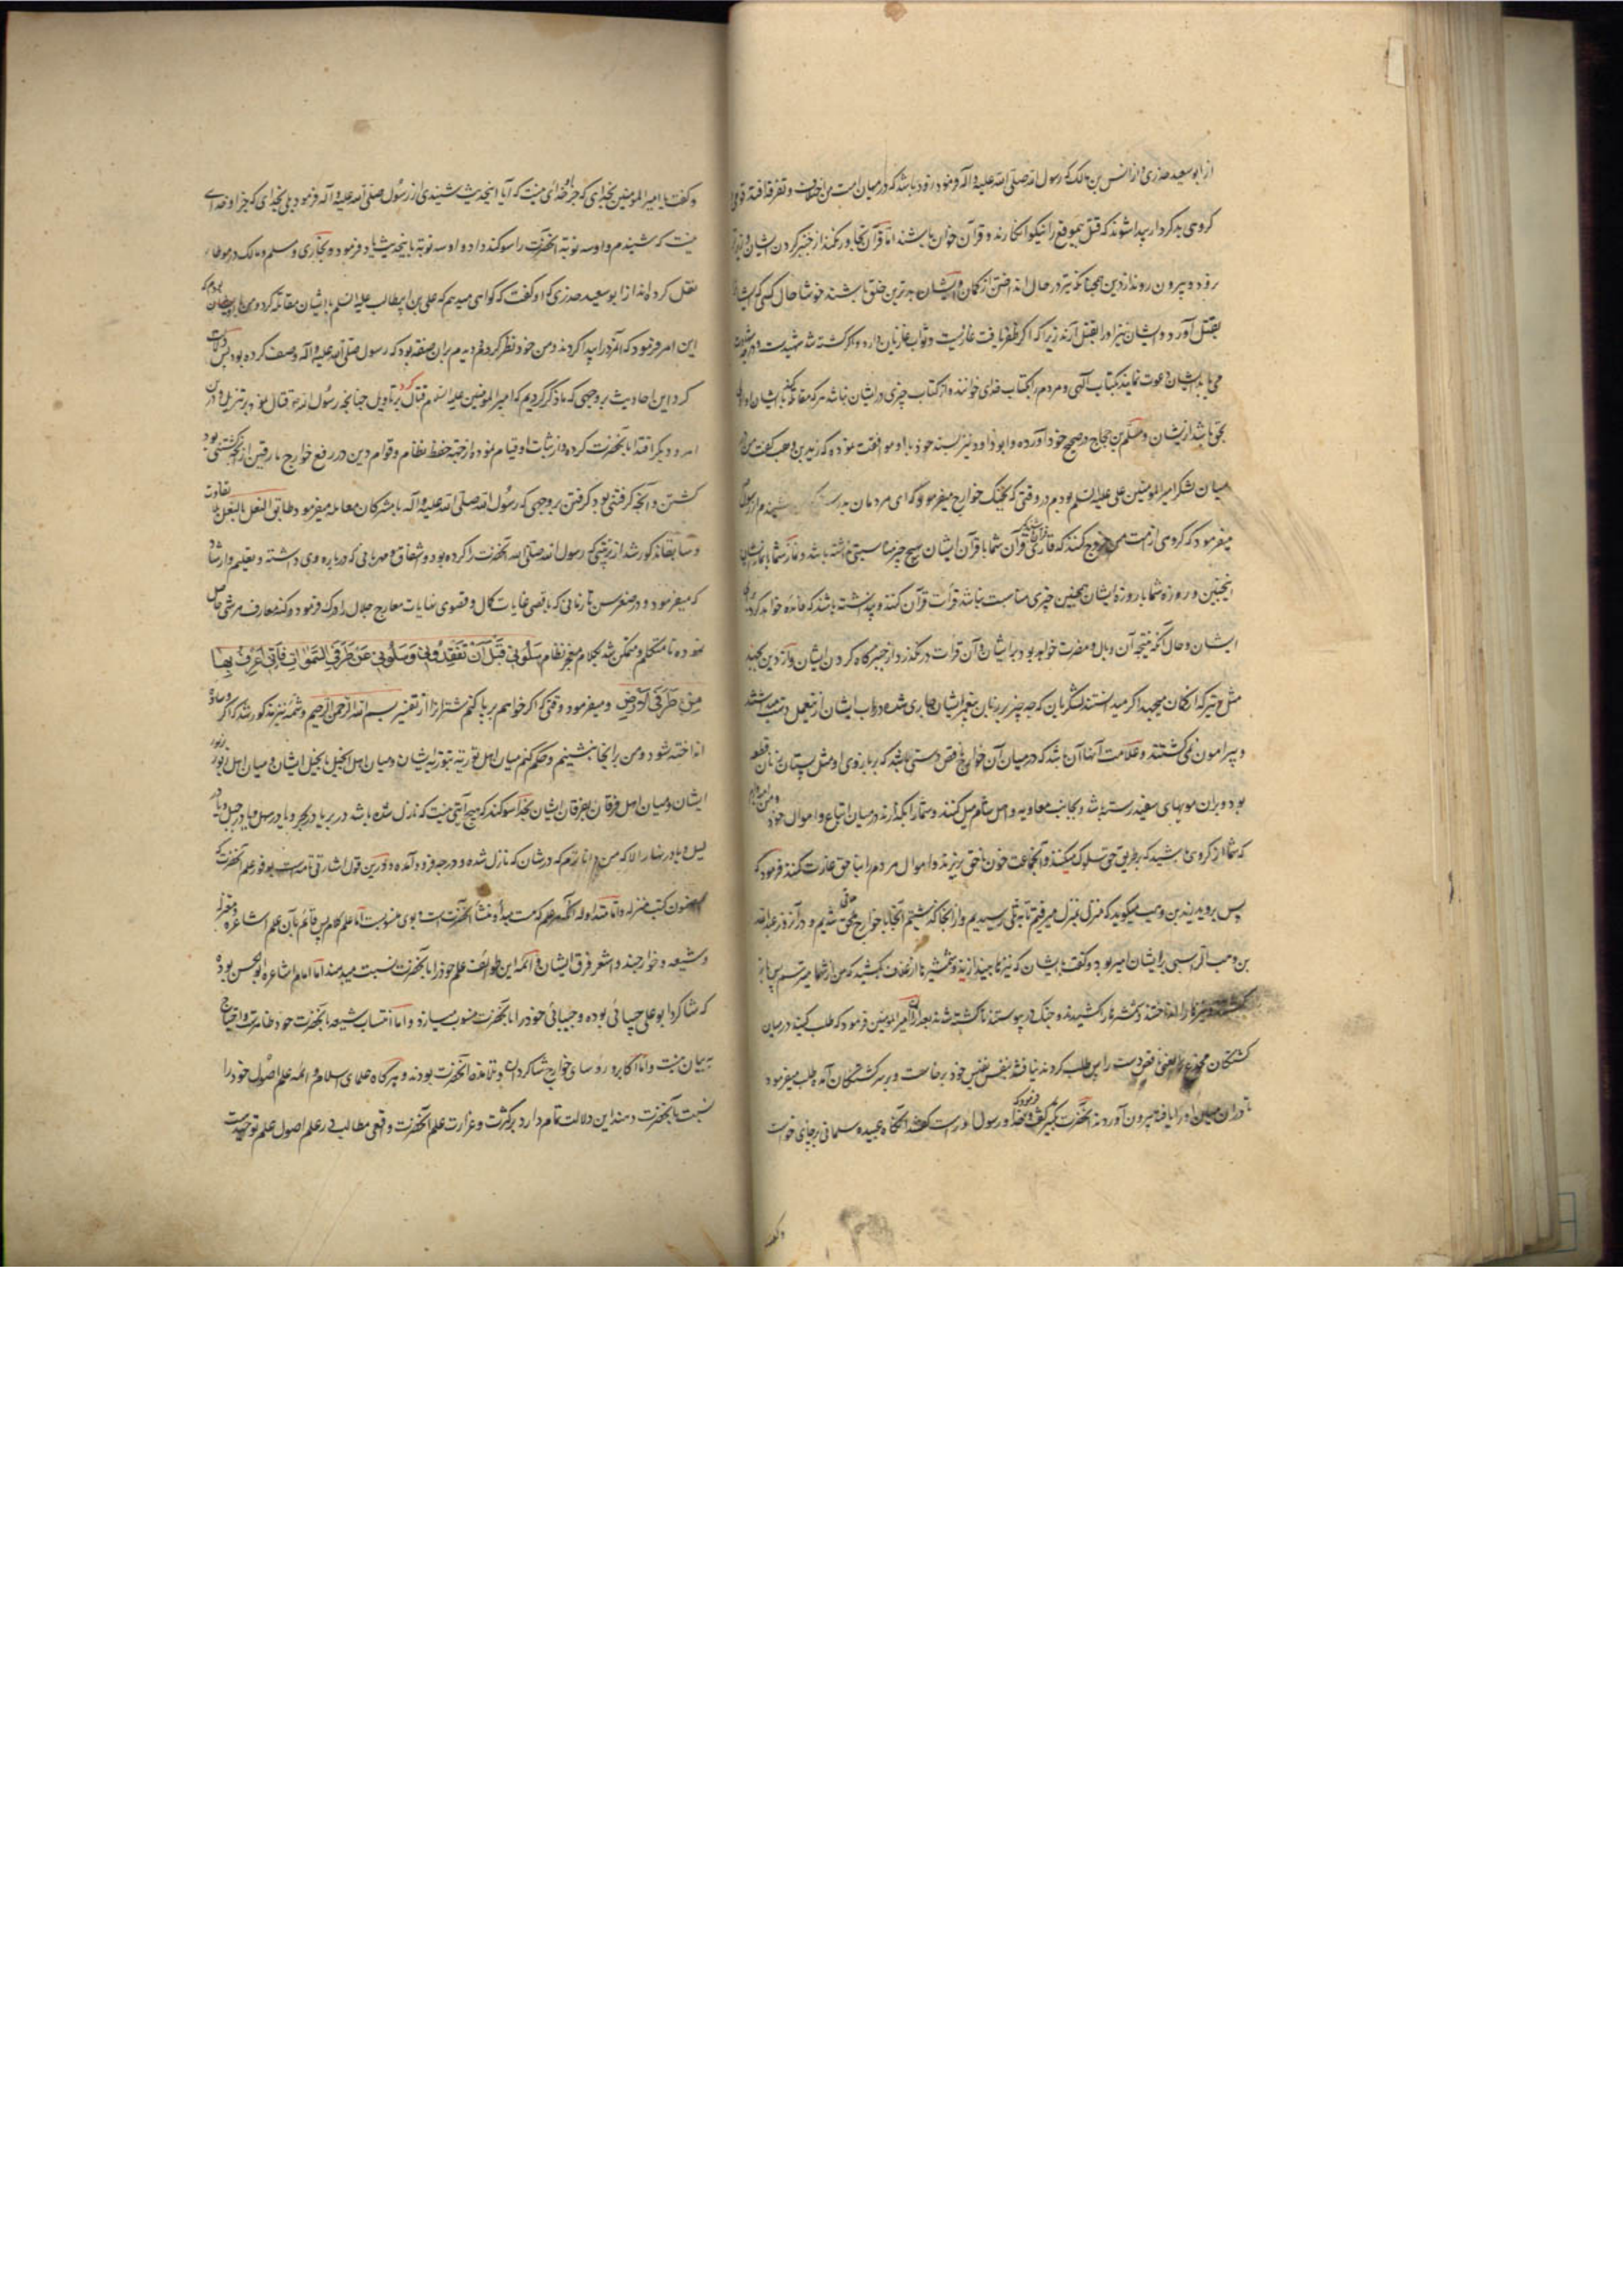 از ابو سعید خدری و از انس بن مالک که رسول الله صلی الله علیه و آله فرمود زود باشد که در میان امت من اختلاف و تفرقه افتد قومی
کروهی بد کردار پیدا شوند که قتل بیموقع را نیکو انکارند و قرآن خوان باشند اما قرآن تجاوز نکند از خنجر کردن ایشان و
زود و بیرون روند از دین همچنانکه تیر در حال انداختن از کمان و ایشان بدترین خلق باشند خوشا حال کسی که ایشان
بقتل آورد و ایشان نیز او را بقتل آرند زیرا که اگر ظفر یافت غازیست و ثواب غازیان دارد و اگر کشته شد شهیدست و
می باید ایشان دعوت نمایند بکتاب آلهی و مردم را بکتاب خدای خوانند و از کتاب چیزی در ایشان نباشد هر که مقاتله کند با ایشان اولی
بحق باشد از یشان و مسلم بن حجاج در صحیح خود آورده و ابو داود نیز بسند خود با او موافقت نموده که زید بن وهب گفت من در
میان لشکر امیر المومنین علی علیه السلم بودم در وقتی که بجنک خوارج میفرمود که ای مردمان بدرستی که شنیدم از رسول
میفرمود که کروهی از امت من خروج کنند که قرآن شما با قرآن ایشان هیچ چیز مناسبتی نداشته باشد و نماز شما با نماز ایشان
اینچنین و روزه شما با روزه ایشان همچنین چیزی مناسبت نباشد قرأت قرآن کنند و پنداشته باشند که فائده خواهد کرد
ایشان و حال آنکه نتیجه آن وبال و مضرت خواهد بود بر ایشان و آن قرأت در نکذرد از خنجرکاه کردن ایشان و از دین بجهند
مثل تیر که از کمان میجهد اگر میدانستند لشکریان که چه چیز بر زبان پیغمبر ایشان جاری شده در باب ایشان از عمل دست میداشتند
و پیرامون نمی کشتند و علامت آنها آن باشد که در میان آن خوارج ناقص دستی باشد که بر بازوی او مثل پستان زنان قطعه
بود و بران مویهای سفید رسته باشد و بجانب معاویه و اهل شام میل کنند و شما را بگذارند در میان اتباع و اموال خود
که شما از کروهی باشید که بطریق حق سلوک میکنند و آنجماعت خون ناحق بریزند و اموال مردم را بناحق غارت کنند فرمود که
پس بروید زید بن وهب میکوید که منزل بمنزل میرفتم تا به پلی رسیدیم و از آنجا که کذشتیم آنجا با خوارج ملاقی شدیم و در آنروز عبد الله
بن وهب الراسبی بر ایشان امیر بود و گفت بایشان که نیزها بیندازید و شمشیرها از غلاف بکشید که من از شما میترسم پس
نیزها را انداختند و شمشیرها را کشیدند و جنک در پیوستند تا کشته شدند بعد از آن امیر المومنین فرمود که طلب کنید در میان
کشتکان مخدج را یعنی ناقص دست را پس طلب کردند نیافتند بنفس نفیس خود برخاست و بر سر کشتکان آمده طلب میفرمود
تا در ان میان او را یافته بیرون آوردند آنحضرت تکبیر گفت و فرمود که خدا و رسول او راست گفته آنگاه عبیده سلمانی بر جای خواست
و گفت
و گفت یا امیر المومنین بخدای که جز او خدائی نیست که آیا اینحدیث شنیدی از رسول صلی الله علیه و آله فرمود بلی بخدای که جز او خدای
نیست که شنیدم و او سه نوبة آنحضرت را سوکند داد و او سه نوبة باینحدیث یاد فرمود و بخاری و مسلم و مالک در موطا
نقل کرده اند از ابو سعید خدری که او گفت که گواهی میدهم که علی بن ابیطالب علیه السلم با ایشان مقاتله کرد و من با او بودم
این امر فرمود که آنمرد را پیدا کردند و من خود نظر کردم و دیدم بران صفة بود که رسول صلی الله علیه و آله وصف کرده بود پس دلالت
کرد این احادیث بر وجهی که ما ذکر کردیم که امیر المومنین علیه السلم قتال کرد بر تاویل چنانچه رسول الله قتال نمود بر تنزیل و در ان
امر و دیگر اقتدا بآنحضرت کرده و از ثبات او قیام نمود از جهة حفظ نظام و قوام دین در رفع خوارج مارقین از آنچه کشتنی بود
کشتن و آنچه گرفتنی بود گرفتن بر وجهی که رسول الله صلی الله علیه و آله با مشرکان معامله میفرمود طابق النعل بالنعل بلا تفاوت
و سابقا مذکور شد از تربیتی که رسول الله صلی الله آنحضرت را کرده بود و اشفاق و مهربانی که در باره وی داشته و بتعلیم و ارشاد
که میفرمود و در صغر سن تا زمانی که باقصی غایات کمال و قصوی نهایات معارج جلال او را ترقی فرمود و کنه معارف مرشی حاصل
نموده تا متکلم و متمکن شد بکلام معجز نظام سَلُونی قَبْلَ اَنْ تَفْقِدُونی وَسَلُونی عَنْ طُرُقِ السَّمٰوَاتِ فَاِنّی اَعْرَفُ بِهَا
مِنْ طُرُقِ الْاَرْضِ و میفرمود وقتی که اگر خواهم بر پا کنم شتر انرا از تفسیر بسم الله الرحمن الرحیم و شمه نیز مذکور شد که اگر وساده
انداخته شود و من بر اینجا بنشینم و حکم کنم میان اهل توریة بتوریة ایشان و میان اهل انجیل بانجیل ایشان و میان اهل زبور بزبور
ایشان و میان اهل فرقان بفرقان ایشان بخدا سوکند که هیچ آیتی نیست که نازل شده باشد در بر یا در بحر و یا در سهل و یا در جبل و یا در
لیل و یا در نهار الا که من دانا ترم که در شان که نازل شده و در چه فرود آمده و درین قول اشارتی تامست بوفور علم آنحضرت که
بمضمون کتب منزله و اما متداوله آنکه هر علم که هست مبدأ و منشأ آنحضرت است و بوی منسوبست اما علم کلام پس قائم بآن علم اشاعره و معتزله
و شیعه و خوارجند و اشعر فرق ایشان و ائمه این طوائف علم خود را بآنحضرت نسبت میدهند اما امام اشاعره ابو الحسن بوده
که شاکرد ابو علی جبائی بوده و جبائی خود را بآنحضرت منسوب میسازد و اما انتساب شیعه بآنحضرت خود ظاهرست و احتیاج
به بیان نیست و اما اکابر و روسای خوارج شاکردان و تلامذه آنحضرت بودند و هرکاه علمای اسلام و ائمه علم اصول خود را
نسبت بآنحضرت دهند این دلالت تمام دارد بر کثرت و غزارت علم آنحضرت و اقصی مطالب در علم اصول علم توحیدست